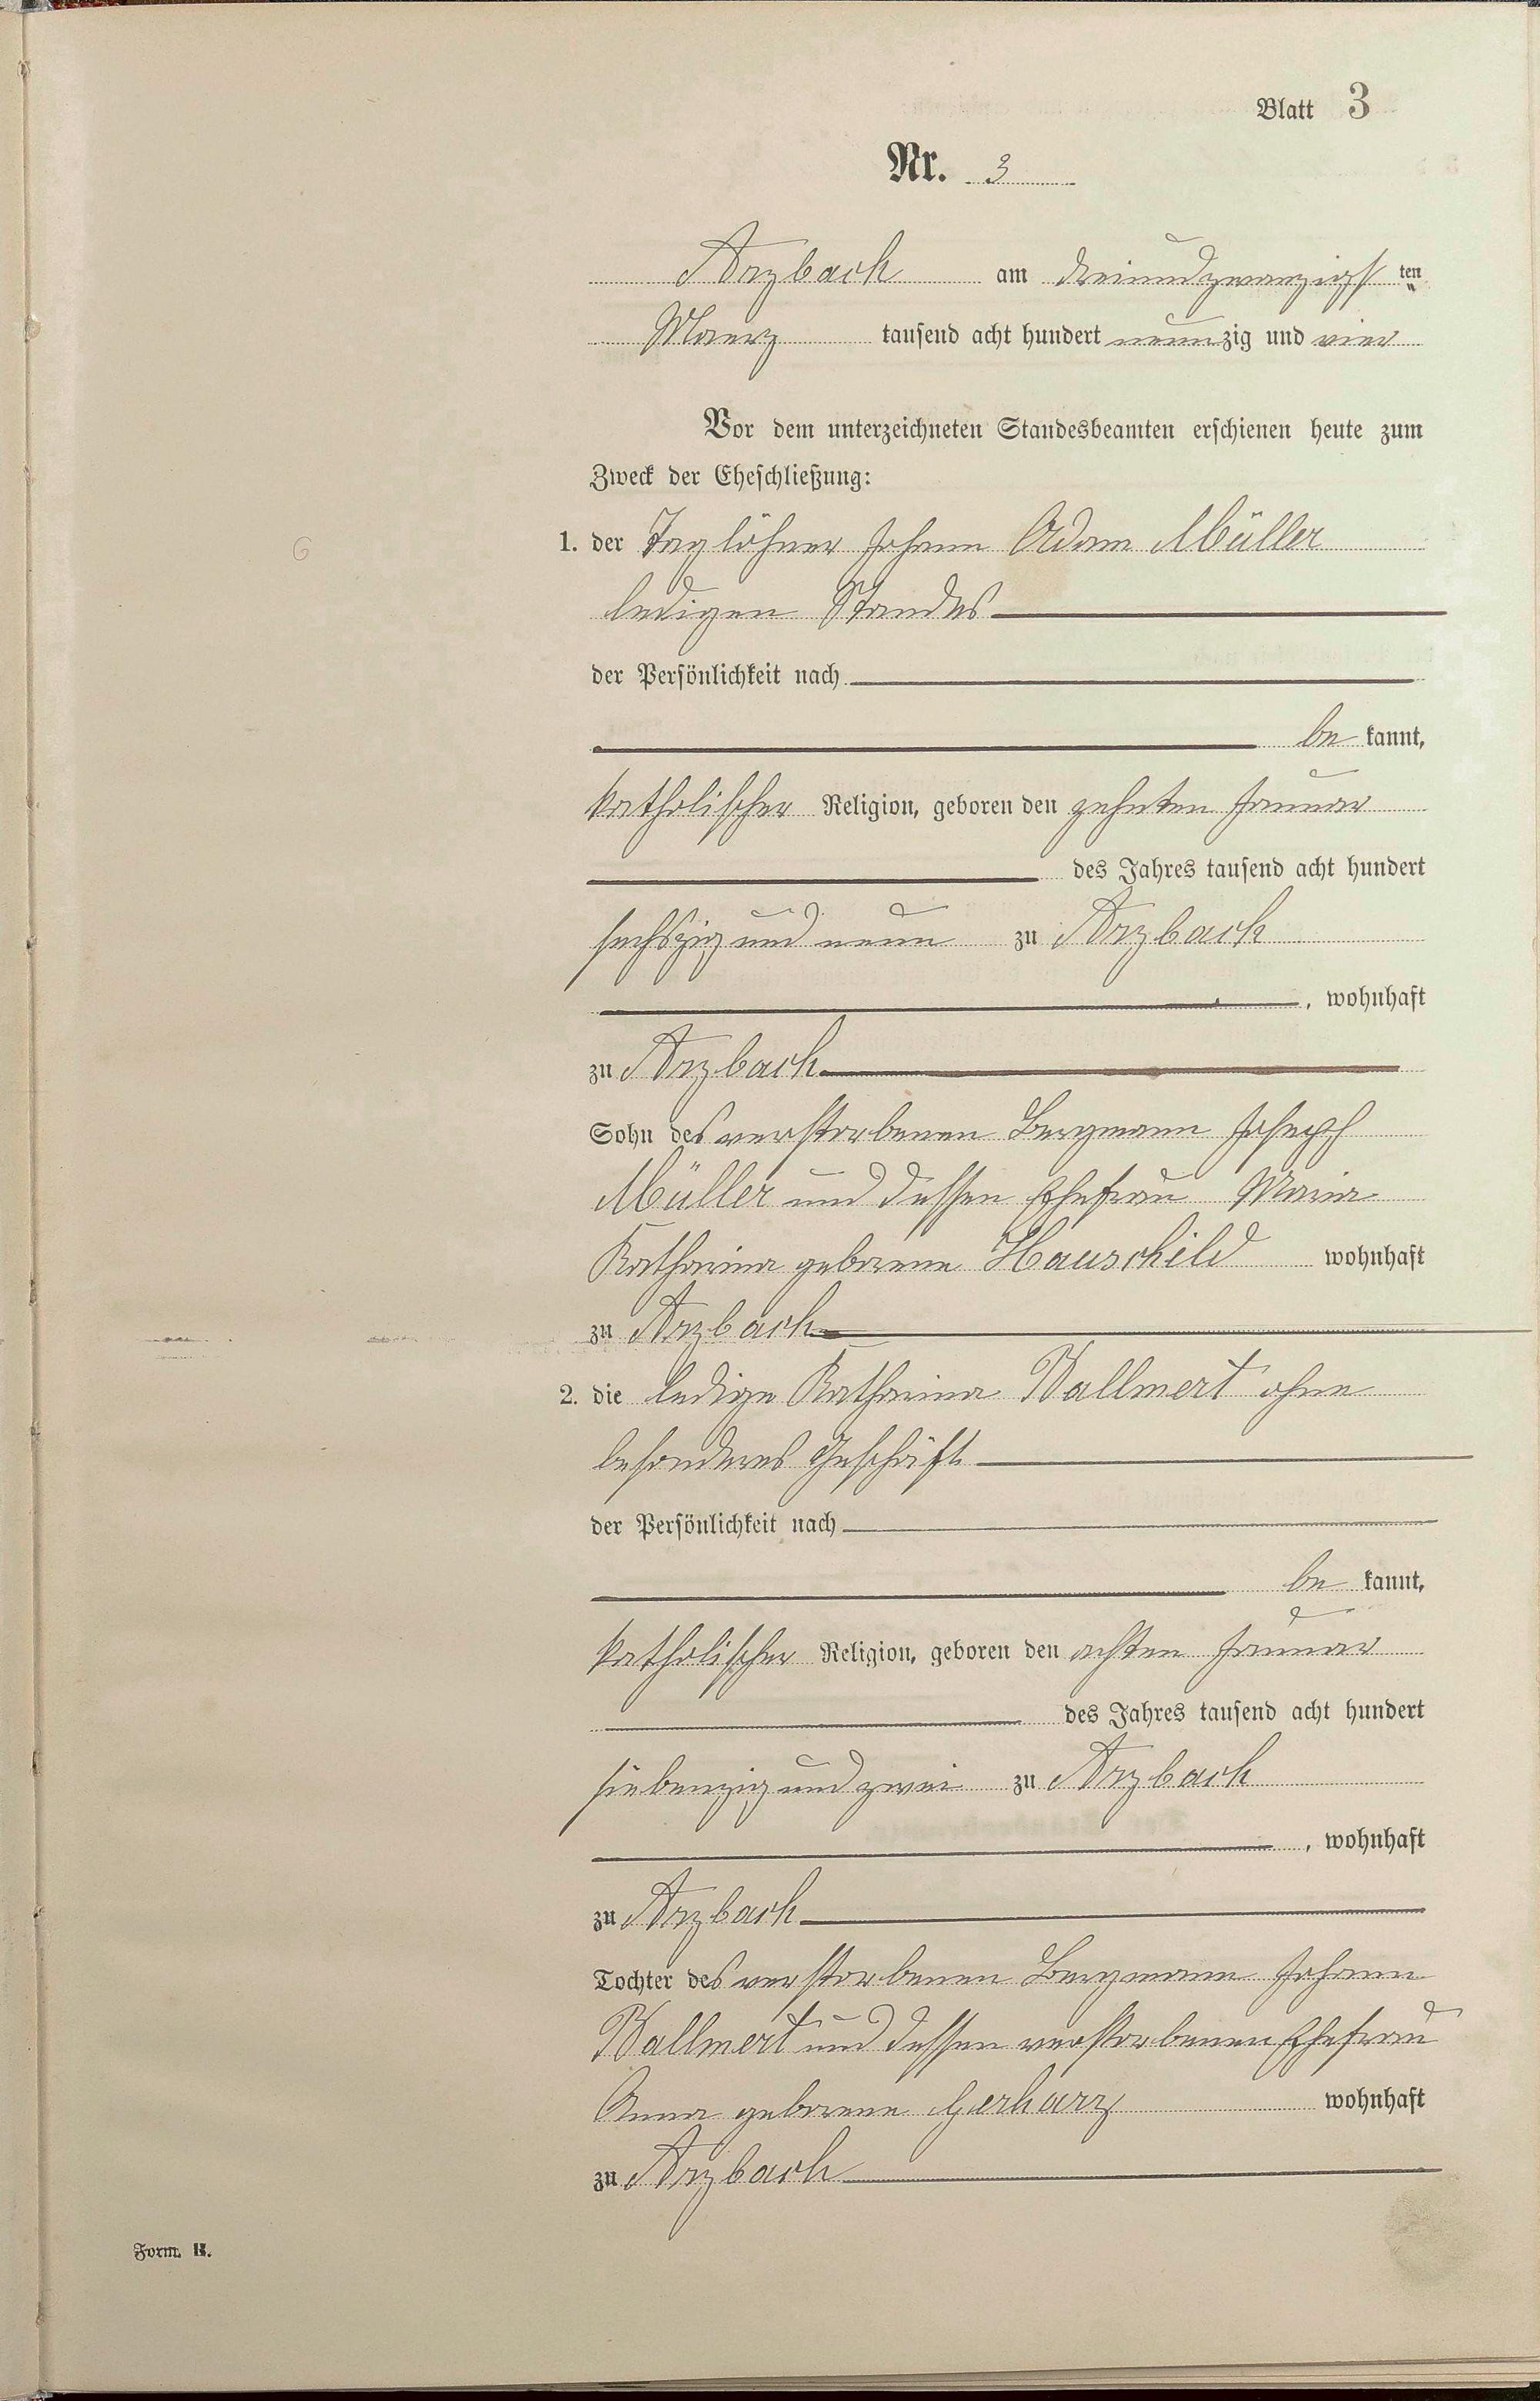 Blatt 3
Nr. 3
Arzbach am dreiundzwanzigsten
Maerz tausend acht hundert neunzig und vier
Vor dem unterzeichneten Standesbeamten erschienen heute zum
Zweck der Eheschließung:
1. der Taglöhner Johann Adam Müller
ledigen Standes
der Persönlichkeit nach
be kannt,
katholischer Religion, geboren den zehnten Januar
des Jahres tausend acht hundert
sechszig und neun zu Arzbach
, wohnhaft
zu Arzbach
Sohn des verstorbenen Bergmann Joseph
Müller und dessen Ehefrau Maria
Katharina geborene Hauschild wohnhaft
zu Arzbach
2. die ledige Katharina Wallmert ohne
besonderes Geschäft
der Persönlichkeit nach
be kannt,
katholischer Religion, geboren den achten Januar
des Jahres tausend acht hundert
siebenzig und zwei zu Arzbach
, wohnhaft
zu Arzbach
Tochter des verstorbenen Bergmann Johann
Wallmert und dessen verstorbenen Ehefrau
Anna geborene Gerharz wohnhaft
zu Arzbach
Form. B.